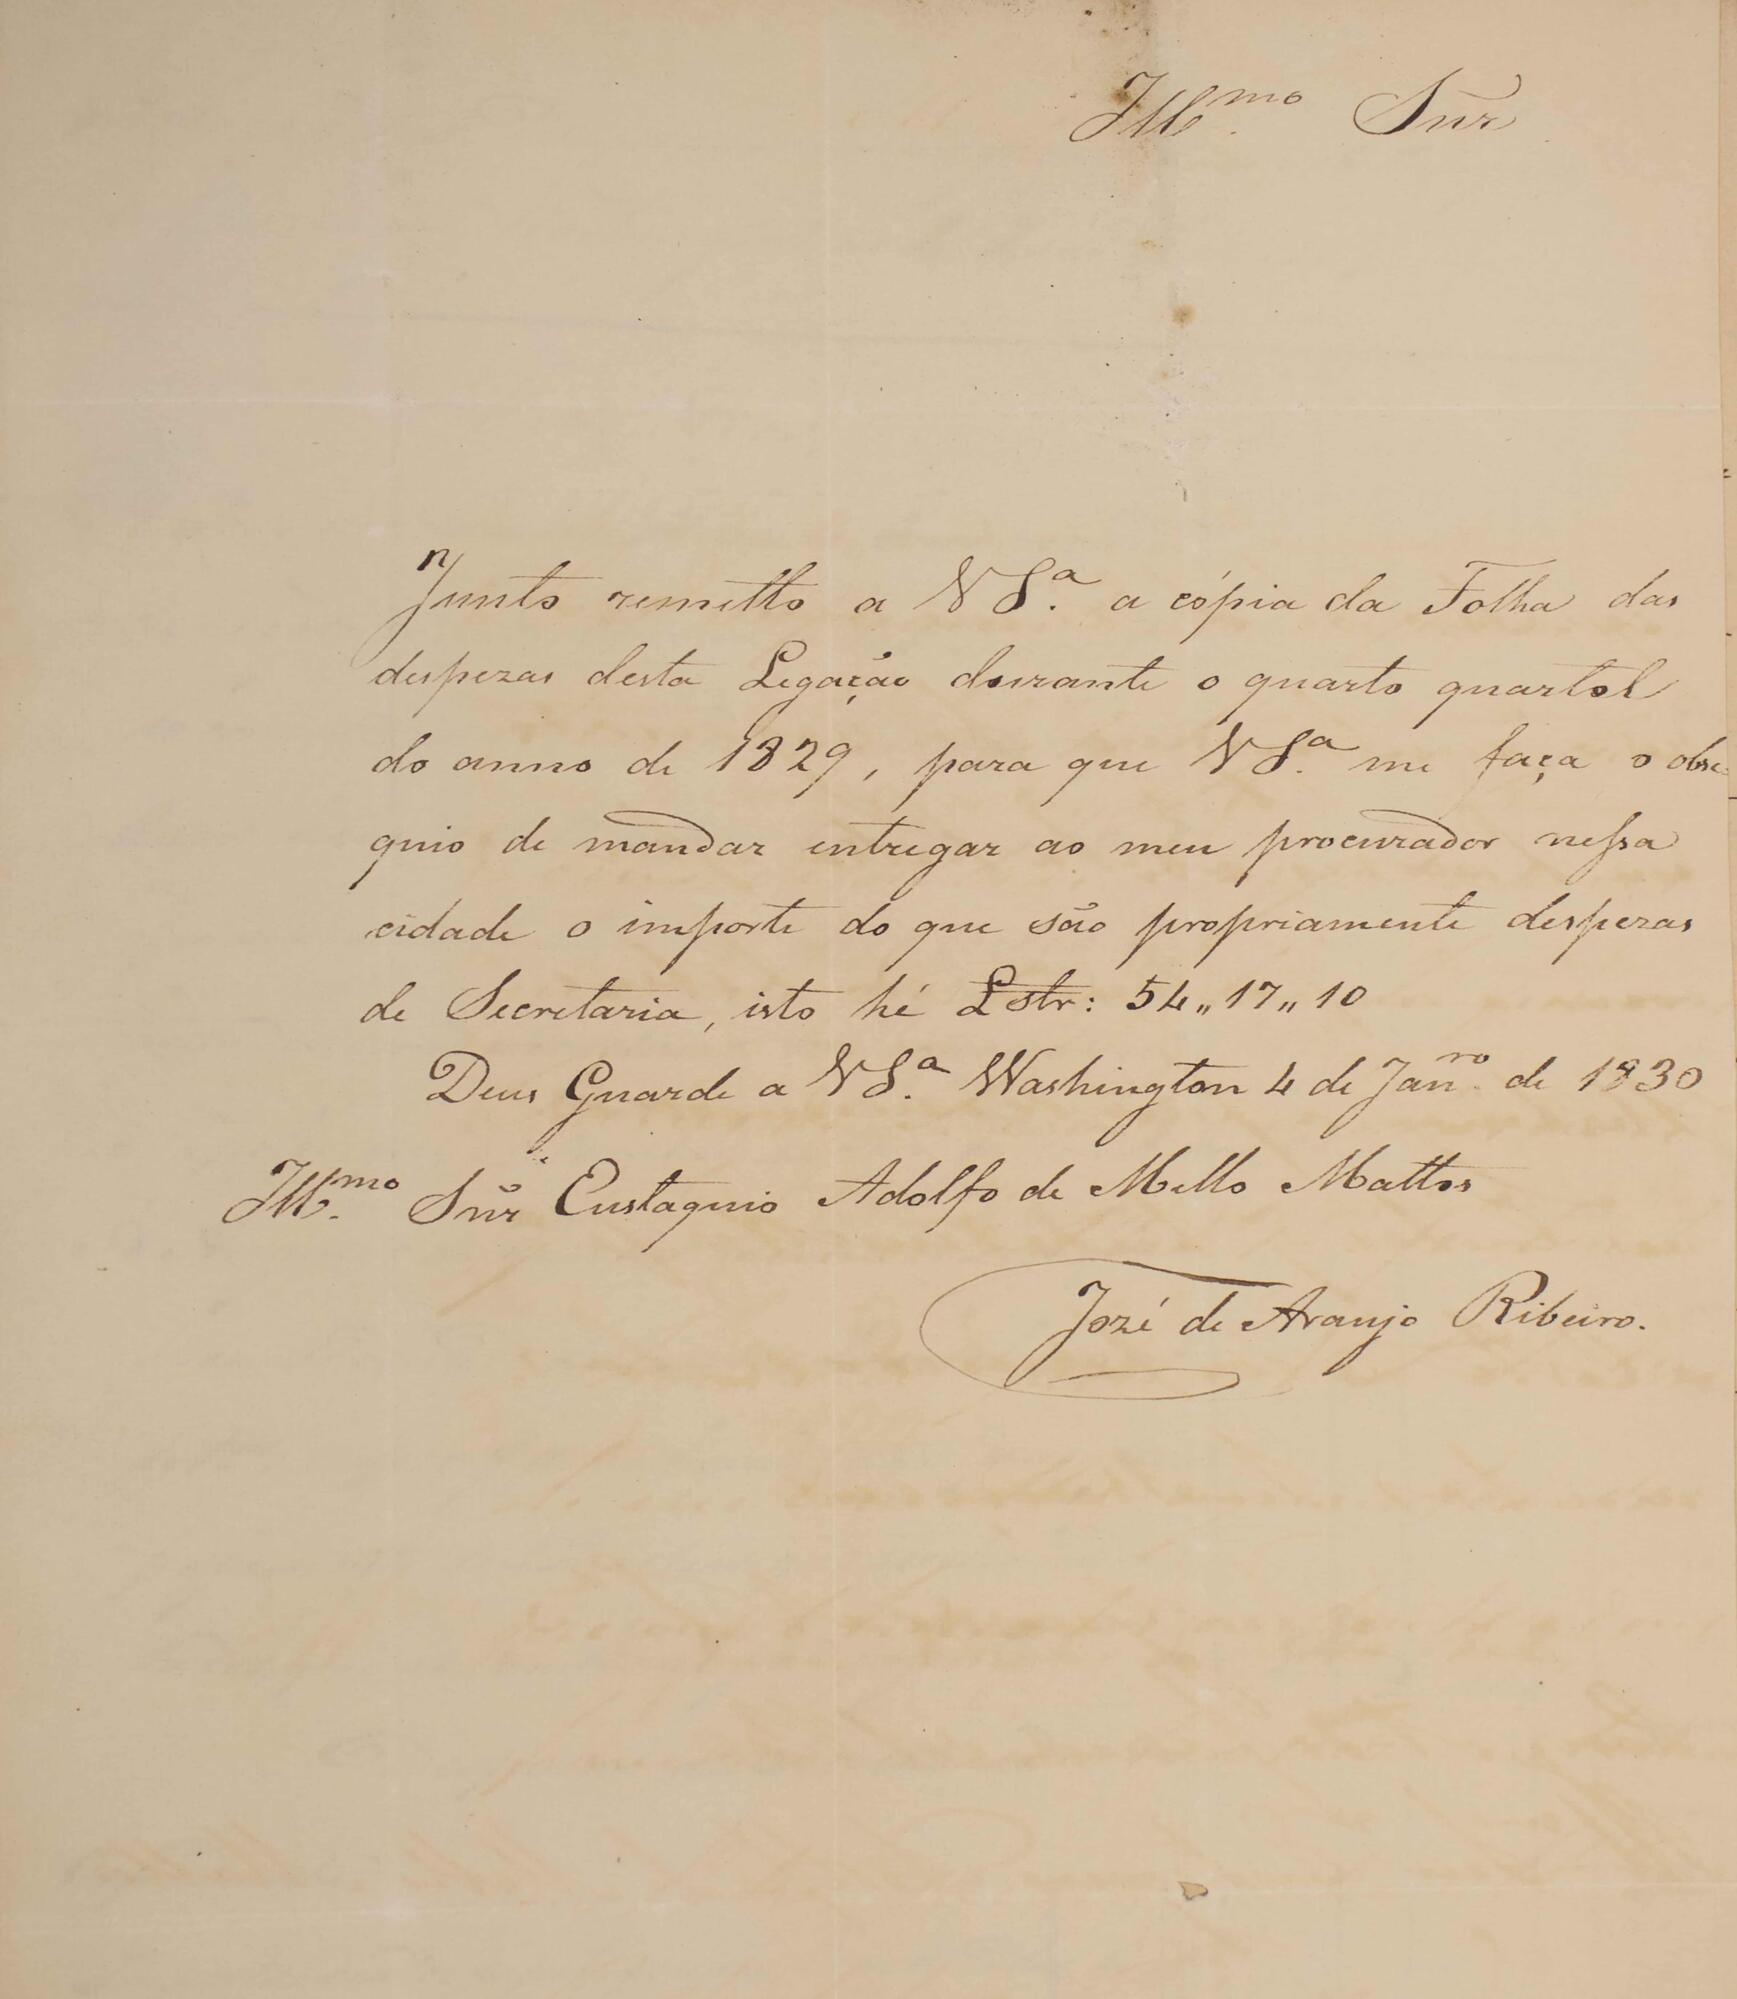 Ill.mo Snr
Junto remetto a V S.a a cópia da Folha das
despezas desta Legação durante o quarto quartel
do anno de 1829, para que V S.a me faça o obse-
quio de mandar entregar ao meu procurador nessa
cidade o importe do que são propriamente despezas
de Secretaria, isto hé Lstr: 54,,17,,10
Deus Guarde a V S.a Washington 4 de Jan.ro de 1830
Ill.mo Snr Eustaquio Adolfo de Mello Mattos
Jozé de Araujo Ribeiro.